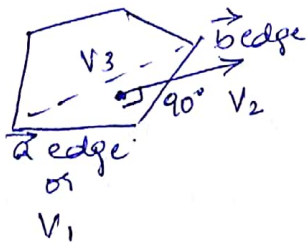 b edge
V3
90°
V2
a edge
or
V1